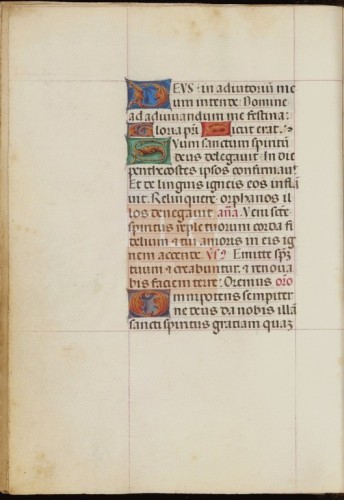 DEVS in adiutoriū me
um intende Domine
ad adiuuandum me festina
Gloria pr̄i Sicut erat
Suum sanctum spiritū
deus delegauit In die
penthecostes ipsos confirmauit
Et de linguis igneis eos inflā
uit Relinquere orphanos il
los denegauit aña Veni sc̄te
spiritus reple tuorum corda fi
delium & tui amoris in eis ig
nem accende Emitte
tuum & creabuntur & renoua
bis faciem terre Oremus orō
Omnipotens sempiter
ne deus da nobis illā
sancti spiritus gratiam quaz